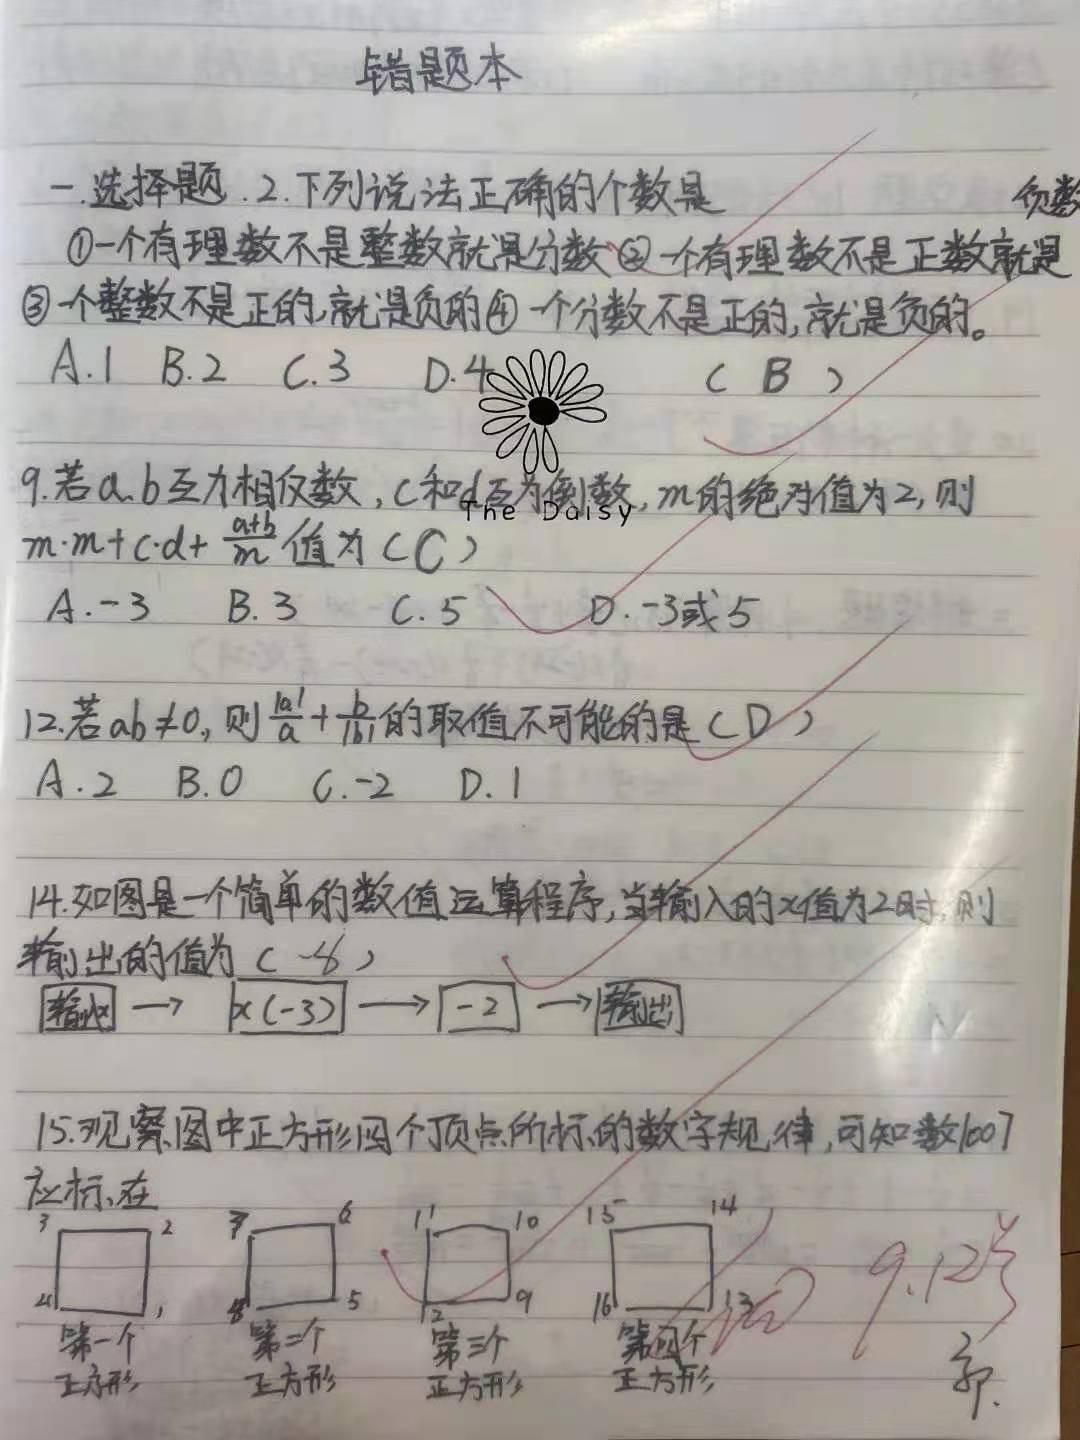 错题本
一.选择题.2.下列说法正确的个数是
负数
①一个有理数不是整数就是分数②一个有理数不是正数就是
③一个整数不是正的,就是负的④一个分数不是正的,就是负的。
A.1 B.2 C.3 D.4 ( B )
9.若a.b互为相反数,c和d互为倒数,m的绝对值为2,则
The Daisy
m·m+c·d+(a+b)/m值为(C)
A.-3 B.3 C.5 D.-3或5
12.若ab≠0,则|a|/a+b/|b|的取值不可能的是(D)
A.2 B.0 C.-2 D.1
14.如图是一个简单的数值运算程序,当输入的x值为2时,则
输出的值为(-8)
输入x → x(-3) → -2 → 输出
15.观察图中正方形四个顶点所标的数字规律,可知数1007
应标在
3 2 7 6 11 10 15 14
4 1 8 5 12 9 16 13
第一个 第二个 第三个 第四个
正方形 正方形 正方形 正方形
9.12
郭.